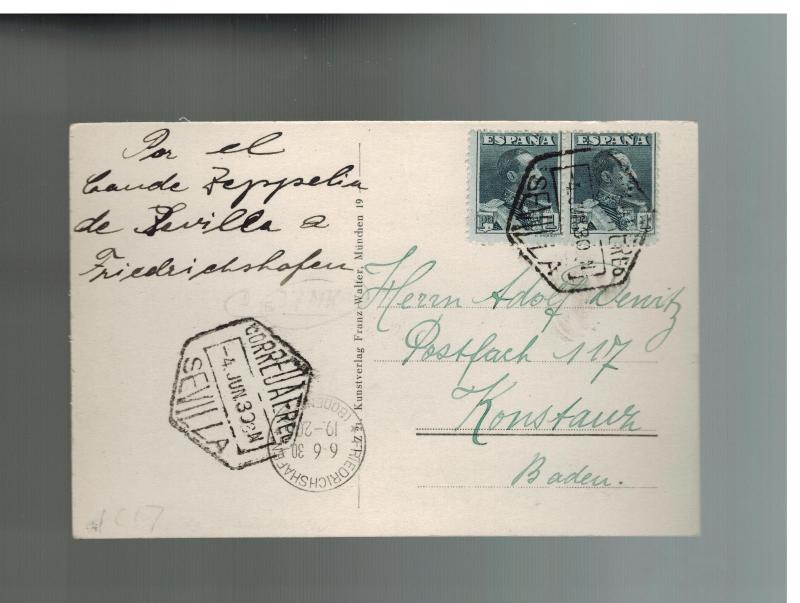 Por el
Conde Zeppelin
de Sevilla a
Friedrichshafen
ESPAÑA
ESPAÑA
CORREO AEREO
-4.JUN.30
SEVILLA
Herrn Adolf Dewitz
Postfach 117
Konstanz
Baden.
Kunstverlag Franz Walter, München 19
CORREO AEREO
-4.JUN.30
SEVILLA
FRIEDRICHSHAFEN
6-6 30
19-20
(BODEN